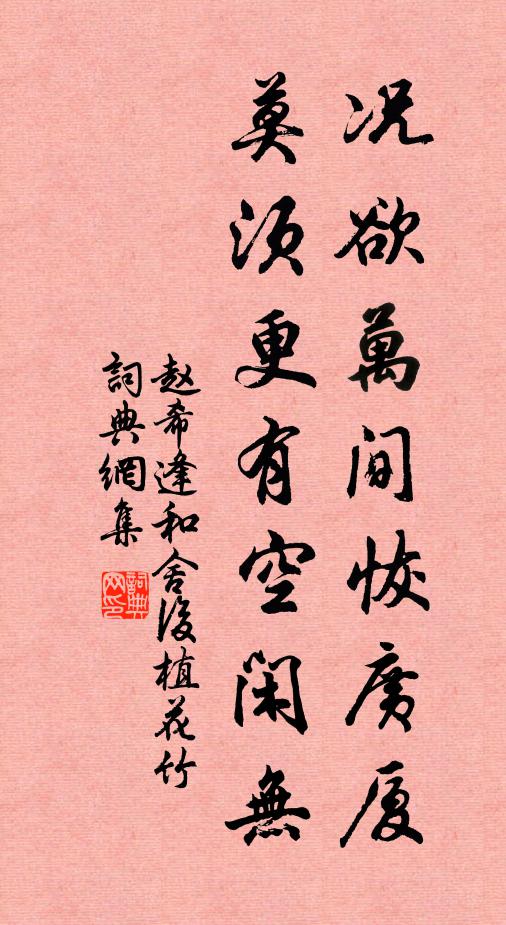 况欲萬间恢廣厦
莫须更有空閑無
赵希逢和舍後植花竹
詞典網集
詞典网印